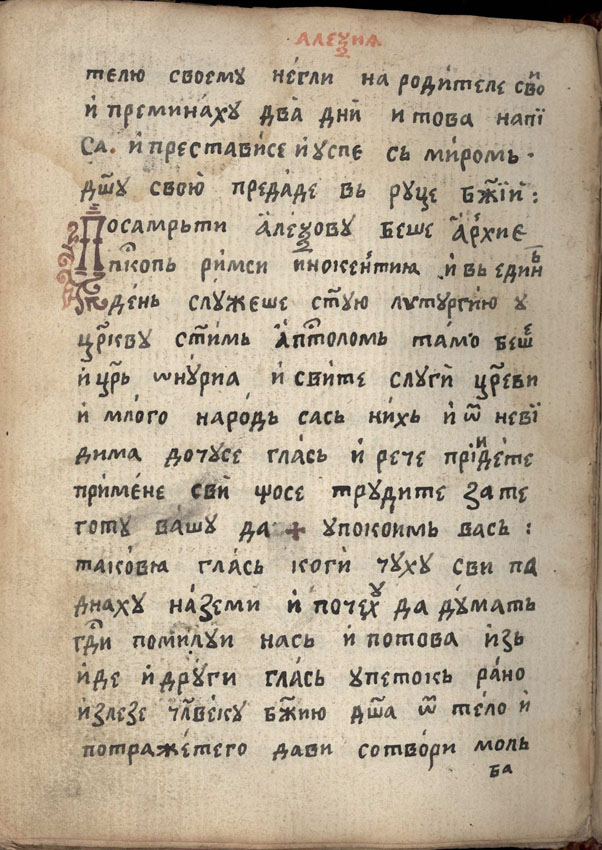 АЛЕѮИА
телю своему не́гли на роди́теле свои̑
и҆ преминаху два̀ дни̑ и това напі
са. и҆ преставѝсе и҆ успе съ миромь·
дш҃у свою̀ преда́де вь руце бж҃їи̑:
Посамрьти а҆леѯову беше а҆рхиє
пⷭ҇копь ри́мси и҆нокен́тиа и҆ вь единь
день слу́жеше ст҃ую литургї́ю у
цр҃кву ст҃имь а҆пⷭ҇толомь та́мо беше
и҆ цр҃ь ѡну́риа и҆ сви́те слугѝ цр҃еви
и҆ мло́го наро́дь сась ни́хь и҆ ѿ неві
дима дочусе гла́сь и҆ рече прїиде́те
при́мене свѝ щосе трудите за те
готу ва́шу да + упокоимь вась:
тако́виа гла́сь когѝ чу́ху сви па
днаху на́земи и҆ почеху да ду́мать
гдⷭ҇и помилуи нась и҆ потова и҆зь
и҆де и҆ дру́ги гла́сь упетокь ра́но
и҆злезе чл҃веку бж҃ию дш҃а ѿ тело и҆
потраже́тего дави сотво́ри моль
ба